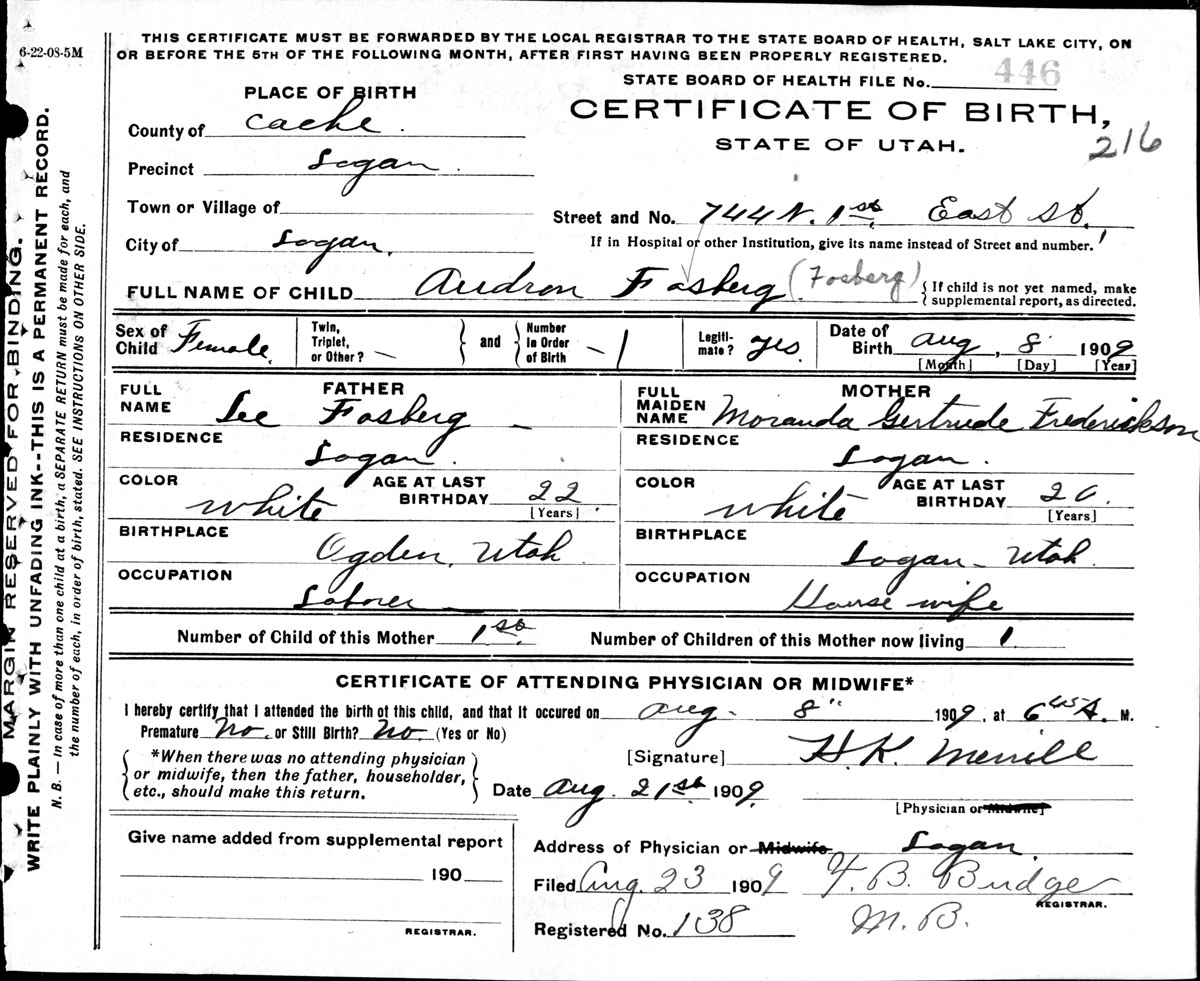 6-22-08-5M
THIS CERTIFICATE MUST BE FORWARDED BY THE LOCAL REGISTRAR TO THE STATE BOARD OF HEALTH, SALT LAKE CITY, ON
OR BEFORE THE 5TH OF THE FOLLOWING MONTH, AFTER FIRST HAVING BEEN PROPERLY REGISTERED.
STATE BOARD OF HEALTH FILE No. 446
PLACE OF BIRTH
CERTIFICATE OF BIRTH,
STATE OF UTAH.
216
County of Cache.
Precinct Logan.
Town or Village of
Street and No. 744 N. 1st East St.
City of Logan.
If in Hospital or other Institution, give its name instead of Street and number.
FULL NAME OF CHILD Audron Fosberg (Fosberg)
{If child is not yet named, make
supplemental report, as directed.
Sex of Child Female.
Twin, Triplet, or Other? —
and
Number in Order of Birth — 1
Legitimate? yes
Date of Birth Aug, 8 1909
[Month] [Day] [Year]
FATHER
FULL NAME Lee Fosberg —
RESIDENCE Logan.
COLOR White
AGE AT LAST BIRTHDAY 22
[Years]
BIRTHPLACE Ogden, Utah.
OCCUPATION Laborer —
MOTHER
FULL MAIDEN NAME Moranda Gertrude Frederickson
RESIDENCE Logan.
COLOR White
AGE AT LAST BIRTHDAY
[Years]
BIRTHPLACE Logan - Utah.
OCCUPATION House wife
Number of Child of this Mother 1st
Number of Children of this Mother now living 1.
CERTIFICATE OF ATTENDING PHYSICIAN OR MIDWIFE*
I hereby certify that I attended the birth of this child, and that it occured on Aug. 8" 1909, at 6 45 A. M.
Premature No. or Still Birth? No. (Yes or No)
*When there was no attending physician
or midwife, then the father, householder,
etc., should make this return.
[Signature] H. K. Merrill
Date Aug. 21st 1909
[Physician or Midwife]
Give name added from supplemental report
190
REGISTRAR.
Address of Physician or Midwife Logan.
Filed Aug. 23 1909 F. B. Budge
REGISTRAR.
Registered No. 138 M. B.
MARGIN RESERVED FOR BINDING.
WRITE PLAINLY WITH UNFADING INK--THIS IS A PERMANENT RECORD.
N. B. — In case of more than one child at a birth, a SEPARATE RETURN must be made for each, and
the number of each, in order of birth, stated. SEE INSTRUCTIONS ON OTHER SIDE.